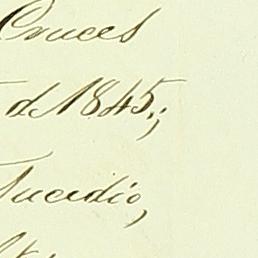 Cruces
d 1845.;
Sucedio,